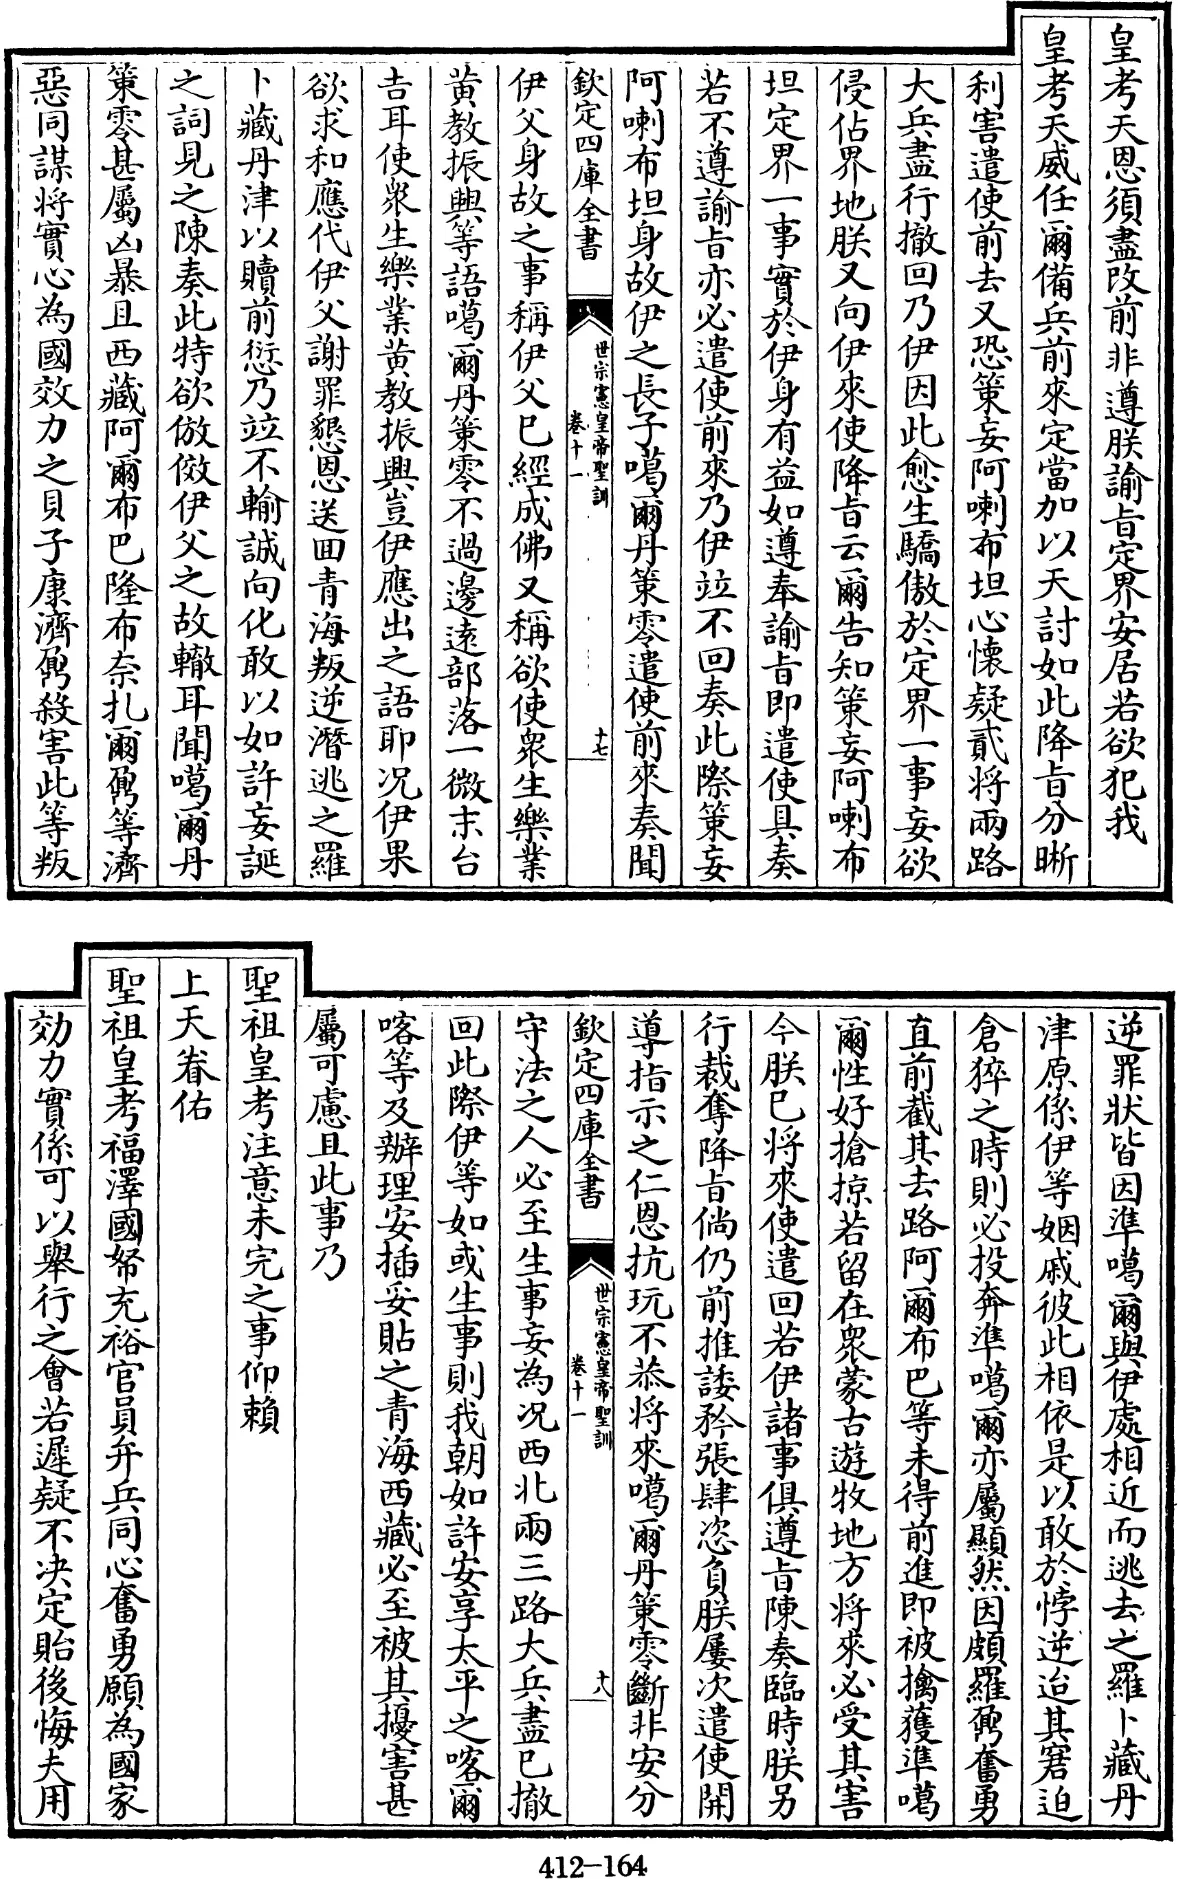 皇考天恩須盡改前非遵朕諭旨定界安居若欲犯我
皇考天威任爾備兵前來定當加以天討如此降旨分晰
利害遣使前去又恐策妄阿喇布坦心懷疑貳將兩路
大兵盡行撤回乃伊因此愈生驕傲於定界一事妄欲
侵佔界地朕又向伊來使降旨云爾告知策妄阿喇布
坦定界一事實於伊身有益如遵奉諭旨即遣使具奏
若不遵諭旨亦必遣使前來乃伊竝不回奏此際策妄
阿喇布坦身故伊之長子噶爾丹策零遣使前來奏聞
欽定四庫全書
世宗憲皇帝聖訓
卷十一
十七
伊父身故之事稱伊父已經成佛又稱欲使衆生樂業
黃教振興等語噶爾丹策零不過邊遠部落一微末台
吉耳使衆生樂業黃教振興豈伊應出之語耶况伊果
欲求和應代伊父謝罪懇恩送回青海叛逆潛逃之羅
卜藏丹津以贖前愆乃竝不輸誠向化敢以如許妄誕
之詞見之陳奏此特欲倣傚伊父之故轍耳聞噶爾丹
策零甚屬凶暴且西藏阿爾布巴隆布奈扎爾鼐等濟
惡同謀將實心為國效力之貝子康濟鼐殺害此等叛
逆罪狀皆因準噶爾與伊處相近而逃去之羅卜藏丹
津原係伊等姻戚彼此相依是以敢於悖逆迨其窘迫
倉猝之時則必投奔準噶爾亦屬顯然因頗羅鼐奮勇
直前截其去路阿爾布巴等未得前進即被擒獲準噶
爾性好搶掠若留在衆蒙古遊牧地方將來必受其害
今朕已將來使遣回若伊諸事俱遵旨陳奏臨時朕另
行裁奪降旨倘仍前推諉矜張肆恣負朕屢次遣使開
導指示之仁恩抗玩不恭將來噶爾丹策零斷非安分
欽定四庫全書
世宗憲皇帝聖訓
卷十一
十八
守法之人必至生事妄為况西北兩三路大兵盡已撤
回此際伊等如或生事則我朝如許安享太平之喀爾
喀等及辦理安插妥貼之青海西藏必至被其擾害甚
屬可慮且此事乃
聖祖皇考注意未完之事仰賴
上天眷佑
聖祖皇考福澤國帑充裕官員弁兵同心奮勇願為國家
効力實係可以舉行之會若遲疑不決定貽後悔夫用
412-164